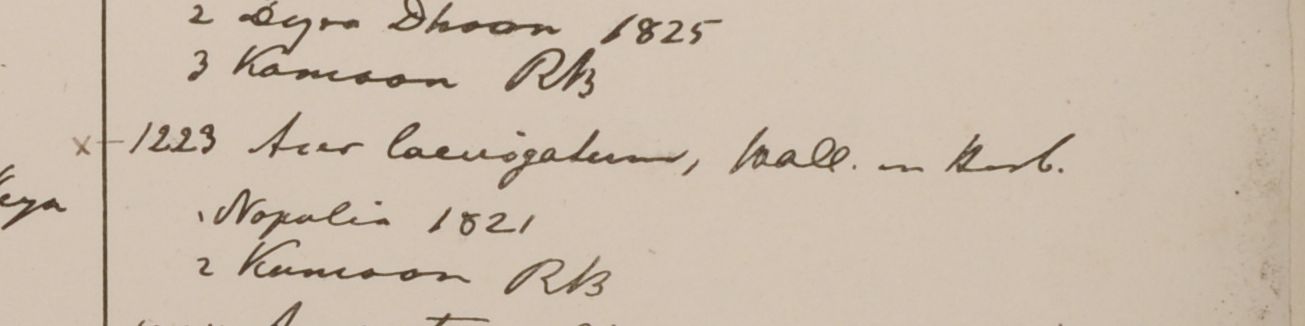 2 Deyra Dhoon 1825
3 Kamaon RB
x 1223 Acer laevigatum, Wall. in Herb.
1 Napalia 1821
2 Kumaon RB